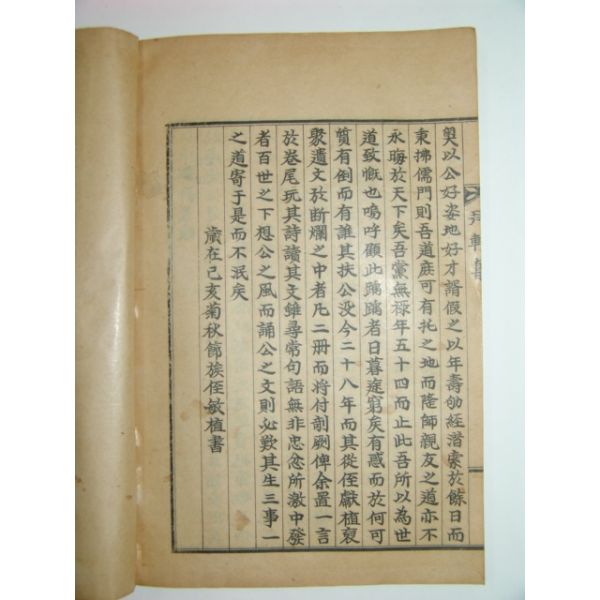 奬以公好姿地好才諝假之以年壽劬經潛索於餘日而
秉拂儒門則吾道庶可有托之地而隆師親友之道亦不
永晦於天下矣吾黨無祿年五十四而止此吾所以爲世
道致慨也嗚呼顧此踽踽者日暮途窮矣有惑而於何可
質有倒而有誰其扶公沒今二十八年而其從侄獻植裒
聚遺文於斷爛之中者凡二冊而將付剞劂俾余置一言
於卷尾玩其詩讀其文雖尋常句語無非忠忿所激中發
者百世之下想公之風而誦公之文則必歎其生三事一
之道寄于是而不泯矣
歲在己亥菊秋節族侄敏植書
軒集